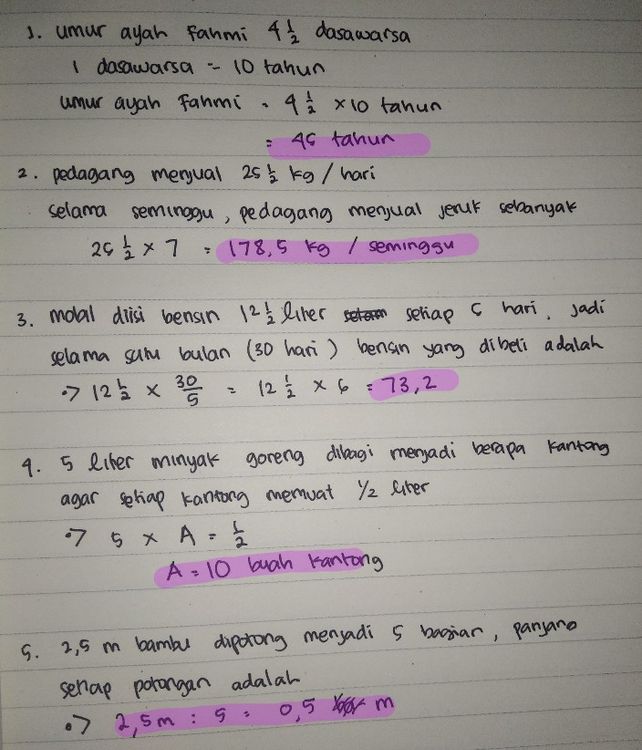 1. umur ayah Fahmi 4 1/2 dasawarsa
1 dasawarsa = 10 tahun
umur ayah Fahmi = 4 1/2 x 10 tahun
= 45 tahun
2. pedagang menjual 25 1/2 kg / hari
selama seminggu, pedagang menjual jeruk sebanyak
25 1/2 x 7 = 178,5 kg / seminggu
3. mobil diisi bensin 12 1/2 liter setiap 5 hari, jadi
selama satu bulan (30 hari) bensin yang dibeli adalah
•> 12 1/2 x 30/5 = 12 1/2 x 6 = 73,2
4. 5 liter minyak goreng dibagi menjadi berapa kantong
agar setiap kantong memuat 1/2 liter
•> 5 x A = 1/2
A = 10 buah kantong
5. 2,5 m bambu dipotong menjadi 5 bagian, panjang
setiap potongan adalah
•> 2,5 m : 5 = 0,5 m